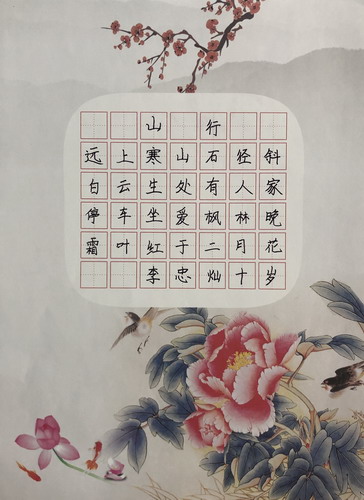 山行
远上寒山石径斜
白云生处有人家
停车坐爱枫林晚
霜叶红于二月花
李忠灿十岁